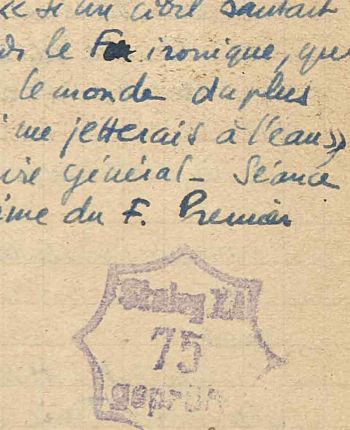 « Si un civil sautait
le F ironique, que
le monde du plus
me jetterais à l'eau »
général - Séance
du F. Premier
Stalag XI A
75
geprüft